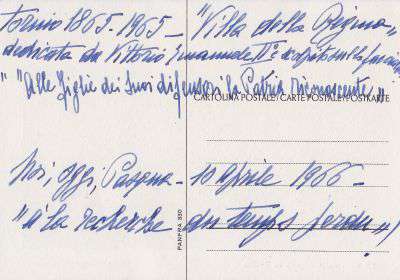 Torino 1865-1965 - "Villa della Regina"
dedicata da Vittorio Emanuele II° e scolpito sulla
" "Alle Figlie dei Suoi difensori la Patria riconoscente"
CARTOLINA POSTALE / CARTE POSTALE / POSTKARTE
Noi, oggi, Pasqua - 10 aprile 1966 -
"à la recherche du temps perdu"
PANFRA 830